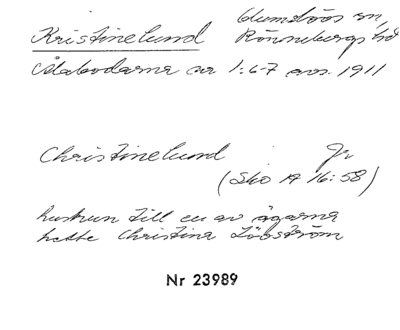 Kristinelund Glumslövs sn,
Rönnebergs hd
Ålabodarna nr 1:6-7 avs. 1911
Christinelund Jr
(Sko A 16:58)
hustrun till en av ägarna
hette Christina Lövström
Nr 23989